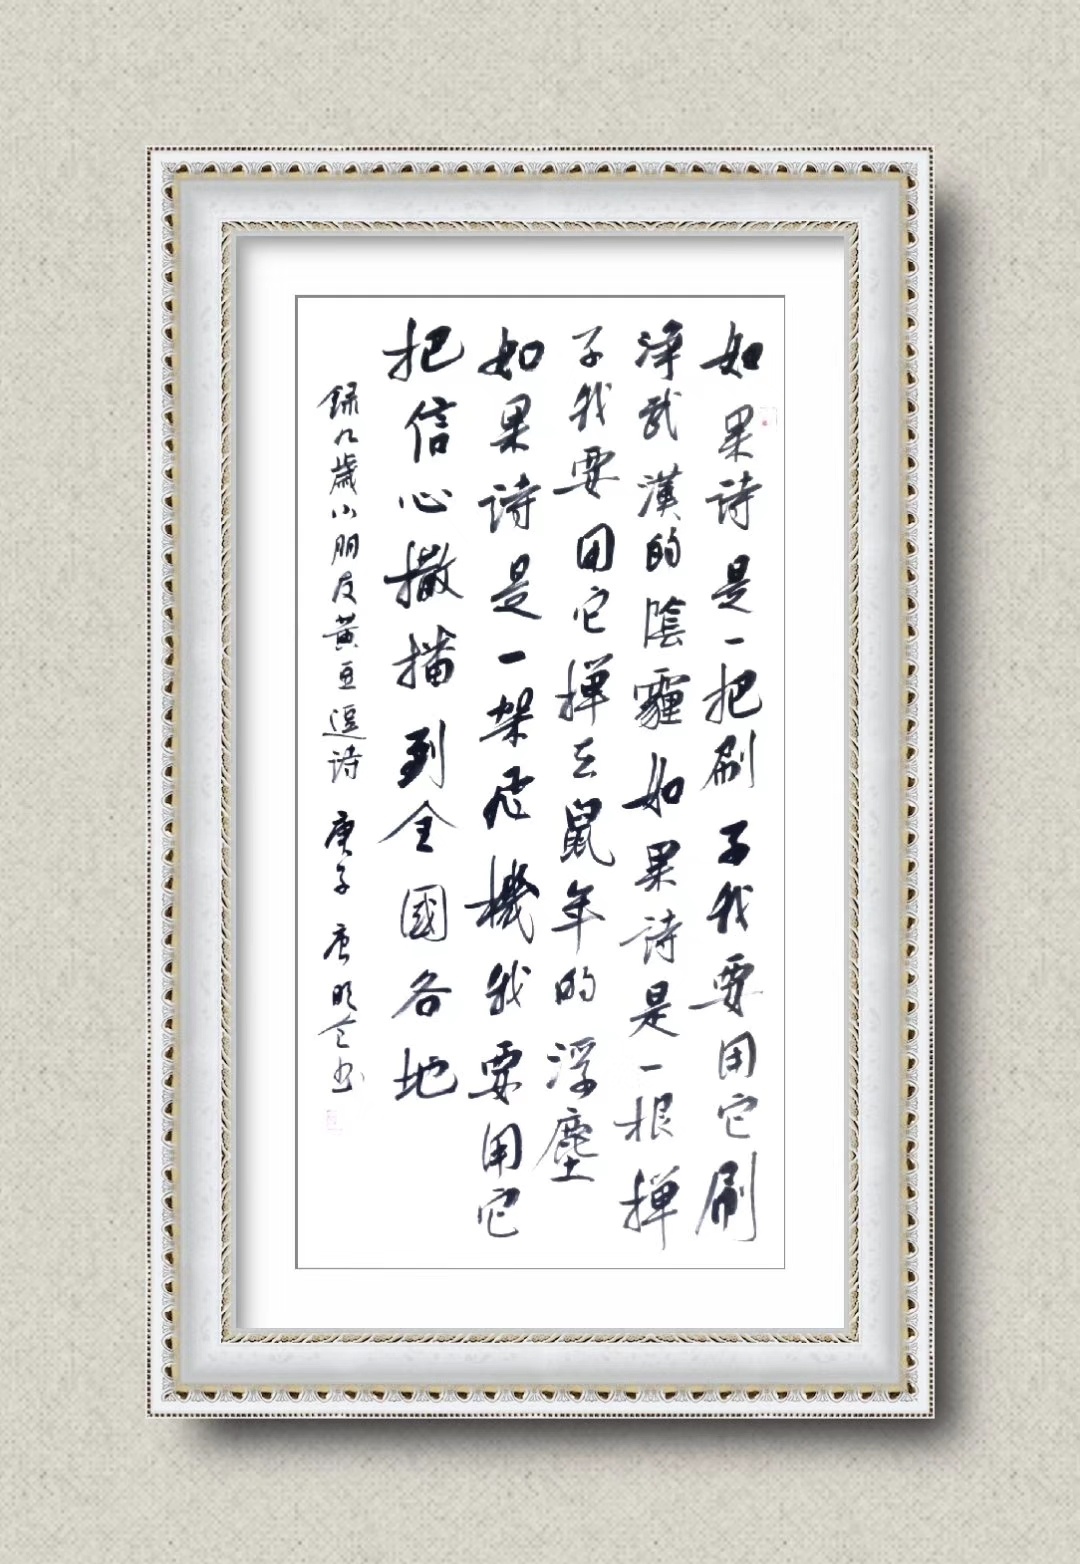 如果诗是一把刷子我要用它刷
净武漢的陰霾如果诗是一根掸
子我要用它掸去鼠年的浮塵
如果诗是一架飛機我要用它
把信心撒播到全國各地
録九歲小朋友黄亘逗诗 庚子 唐明仝书